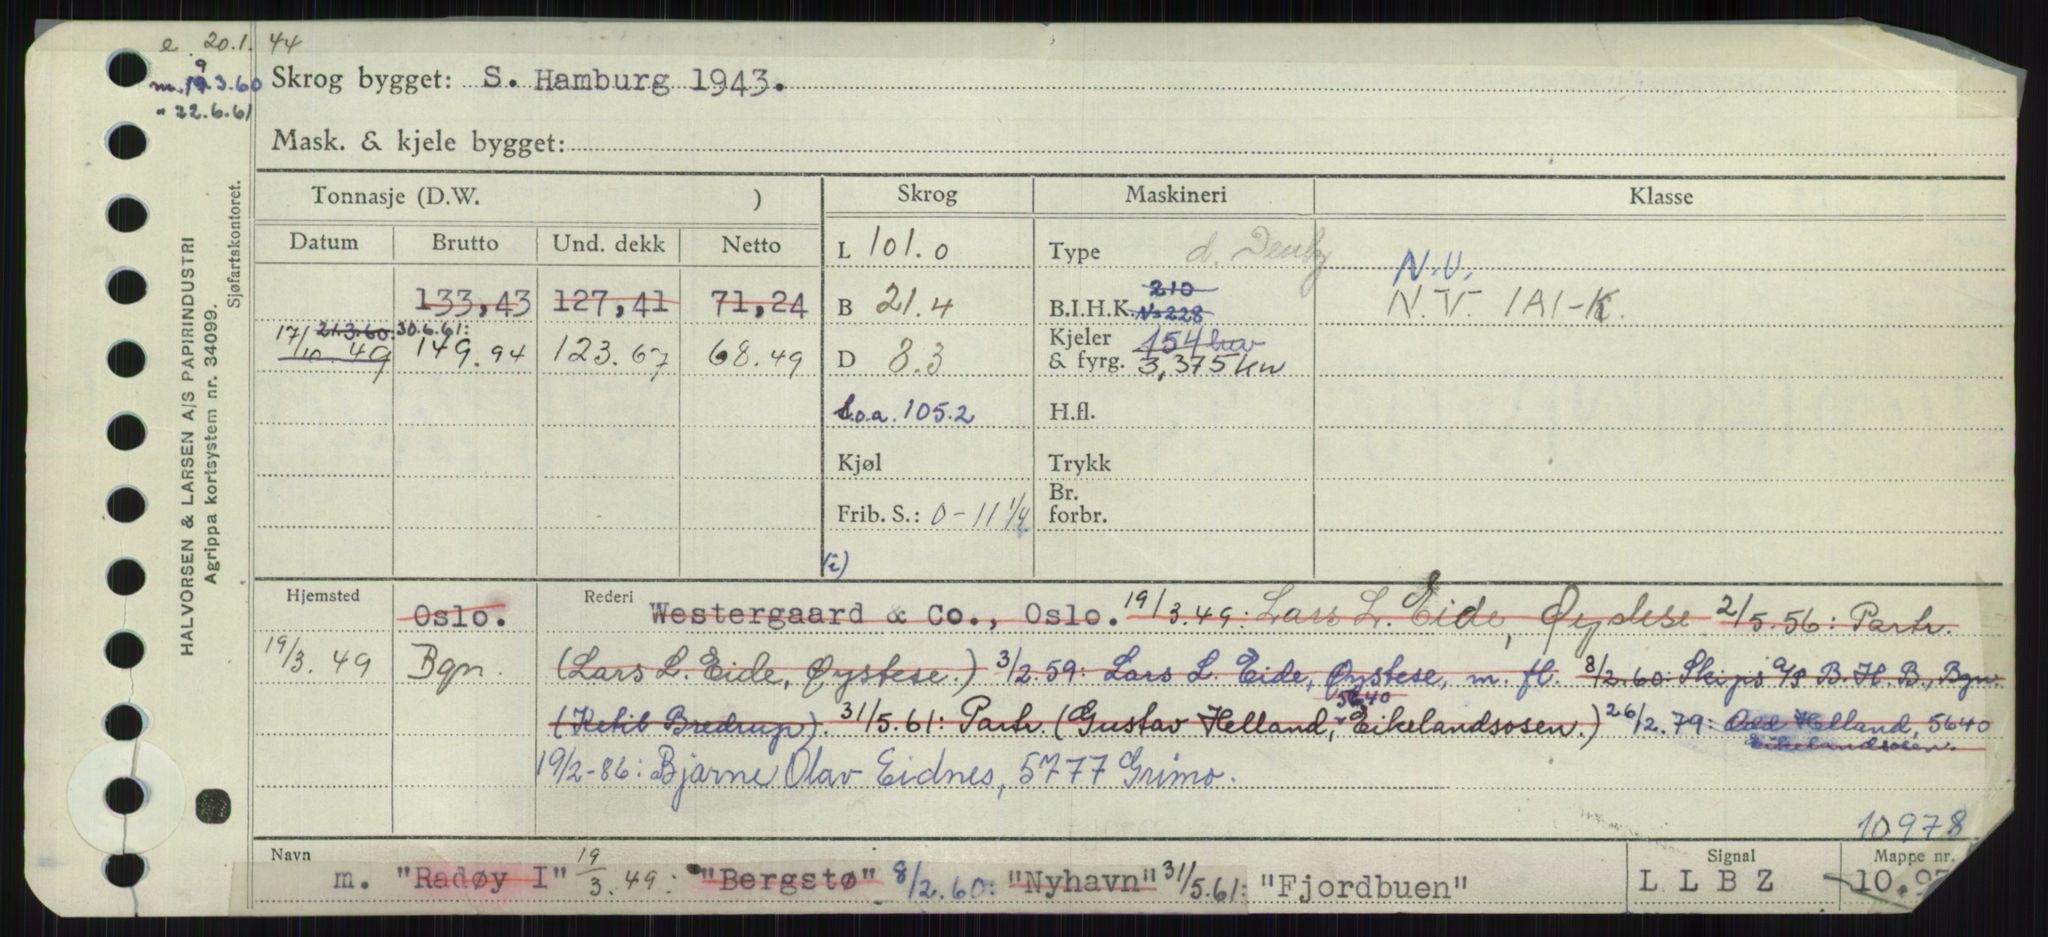 e 20.1.44
m. 19.3.60
" 22.6.61
Skrog bygget: S. Hamburg 1943.
Mask. & kjele bygget:
HALVORSEN & LARSEN A/S PAPIRINDUSTRI
Agrippa kortsystem nr. 34099.
Sjøfartskontoret.
Tonnasje (D.W. ) Skrog Maskineri Klasse
Datum Brutto Und. dekk Netto
L 101.0 Type d. Deutz N.V.
133,43 127,41 71,24 B 21.4 B.I.H.K. 210 N=228 N.V. 1A1-K.
17/10.49 21.3.60: 30.6.61: 149.94 123.67 68.49 D 8.3 Kjeler & fyrg. 154 3,375 kw
L.o.a. 105.2 H.fl.
Kjøl Trykk
Frib. S.: 0-11 1/4 Br. forbr.
(i)
Hjemsted Oslo. Rederi Westergaard & Co., Oslo. 19/3.49: Lars L. Eide, Øystese 2/5.56: Partr.
19/3.49 Bgn. (Lars L. Eide, Øystese.) 3/2.59: Lars L. Eide, Øystese, m. fl. 8/2.60: Skips A/S B.H.B., Bgn.
(Ketil Bredrup). 31/5.61: Partr. (Gustav Helland, 5640 Eikelandsosen.) 26/2.79: Odd Helland, 5640
Eikelandsosen.
19/2-86: Bjarne Olav Eidnes, 5777 Grimo.
10978
Navn Signal Mappe nr.
m. "Radøy I" 19/3.49: "Bergstø" 8/2.60: "Nyhavn" 31/5.61: "Fjordbuen" L L B Z